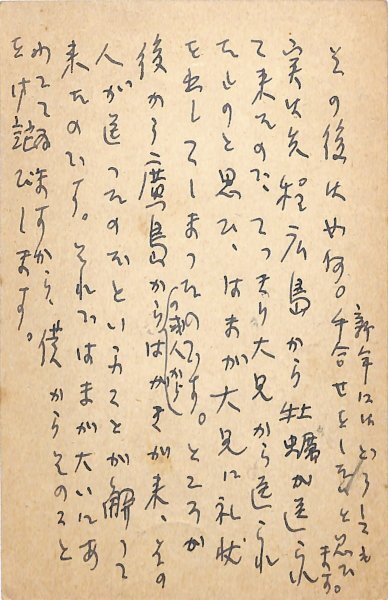 その後は如何。新年にはどうしても
手合せをしたいと思ひ
ます。
実は先程広島から牡蠣が送られ
て来たので、てっきり大兄から送られ
たものと思ひ、はまが大兄に礼状
を出してしまったのです。ところが
後から廣島からはがきが来、その
の求人から
人が送ったのだといふことが解って
来たのです。それではまが大いにあ
わてて居ますから、僕からそのこと
をお詫びします。